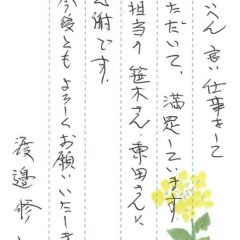 いへん良い仕事をして
いただいて、満足しています
担当の笹木さん、栗田さんに
感謝です。
今後ともよろしくお願いいたしま
渡邉修